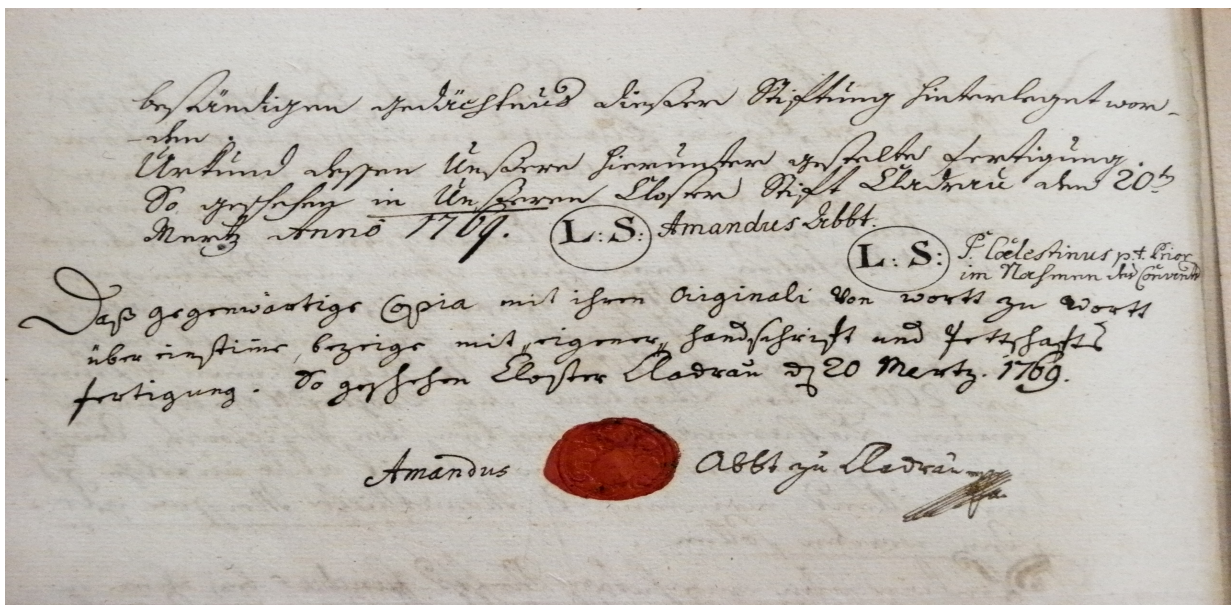 beständigen gedächtnus dießere Stiftung hinterleget wor-
den.
Urkund dessen Unßere hierunter gestelte fertigung.
So geschehen in Unßeren Closer Stift Cladrau den 20ᵗ
Mertz Anno 1769. L: S: Amandus Abbt.
L: S: P. Cœlestinus p.t. Prior
im Nahmen des Convents
Daß gegenwärtige Copia mit ihren Originali von wortt zu wortt
über einstime, bezeige mit eigener handschrift und Pettschafts
fertigung. So geschehen Closter Cladrau d 20 Mertz. 1769.
Amandus Abbt zu Cladrau